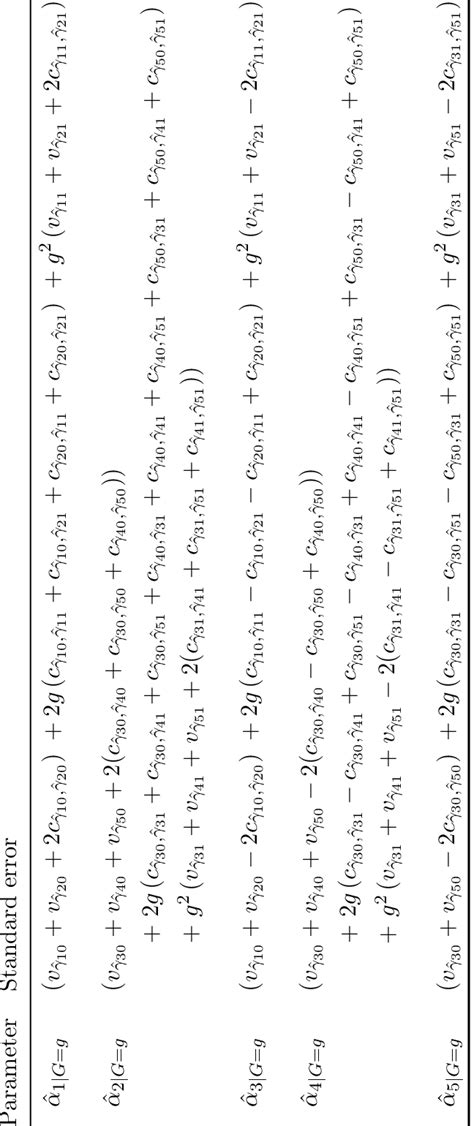 Parameter Standard error
α̂_{1|G=g} (v_{γ̂10} + v_{γ̂20} + 2c_{γ̂10,γ̂20}) + 2g (c_{γ̂10,γ̂11} + c_{γ̂10,γ̂21} + c_{γ̂20,γ̂11} + c_{γ̂20,γ̂21}) + g² (v_{γ̂11} + v_{γ̂21} + 2c_{γ̂11,γ̂21})
α̂_{2|G=g} (v_{γ̂30} + v_{γ̂40} + v_{γ̂50} + 2(c_{γ̂30,γ̂40} + c_{γ̂30,γ̂50} + c_{γ̂40,γ̂50}))
+ 2g (c_{γ̂30,γ̂31} + c_{γ̂30,γ̂41} + c_{γ̂30,γ̂51} + c_{γ̂40,γ̂31} + c_{γ̂40,γ̂41} + c_{γ̂40,γ̂51} + c_{γ̂50,γ̂31} + c_{γ̂50,γ̂41} + c_{γ̂50,γ̂51})
+ g² (v_{γ̂31} + v_{γ̂41} + v_{γ̂51} + 2(c_{γ̂31,γ̂41} + c_{γ̂31,γ̂51} + c_{γ̂41,γ̂51}))
α̂_{3|G=g} (v_{γ̂10} + v_{γ̂20} − 2c_{γ̂10,γ̂20}) + 2g (c_{γ̂10,γ̂11} − c_{γ̂10,γ̂21} − c_{γ̂20,γ̂11} + c_{γ̂20,γ̂21}) + g² (v_{γ̂11} + v_{γ̂21} − 2c_{γ̂11,γ̂21})
α̂_{4|G=g} (v_{γ̂30} + v_{γ̂40} + v_{γ̂50} − 2(c_{γ̂30,γ̂40} − c_{γ̂30,γ̂50} + c_{γ̂40,γ̂50}))
+ 2g (c_{γ̂30,γ̂31} − c_{γ̂30,γ̂41} + c_{γ̂30,γ̂51} − c_{γ̂40,γ̂31} + c_{γ̂40,γ̂41} − c_{γ̂40,γ̂51} + c_{γ̂50,γ̂31} − c_{γ̂50,γ̂41} + c_{γ̂50,γ̂51})
+ g² (v_{γ̂31} + v_{γ̂41} + v_{γ̂51} − 2(c_{γ̂31,γ̂41} − c_{γ̂31,γ̂51} + c_{γ̂41,γ̂51}))
α̂_{5|G=g} (v_{γ̂30} + v_{γ̂50} − 2c_{γ̂30,γ̂50}) + 2g (c_{γ̂30,γ̂31} − c_{γ̂30,γ̂51} − c_{γ̂50,γ̂31} + c_{γ̂50,γ̂51}) + g² (v_{γ̂31} + v_{γ̂51} − 2c_{γ̂31,γ̂51})